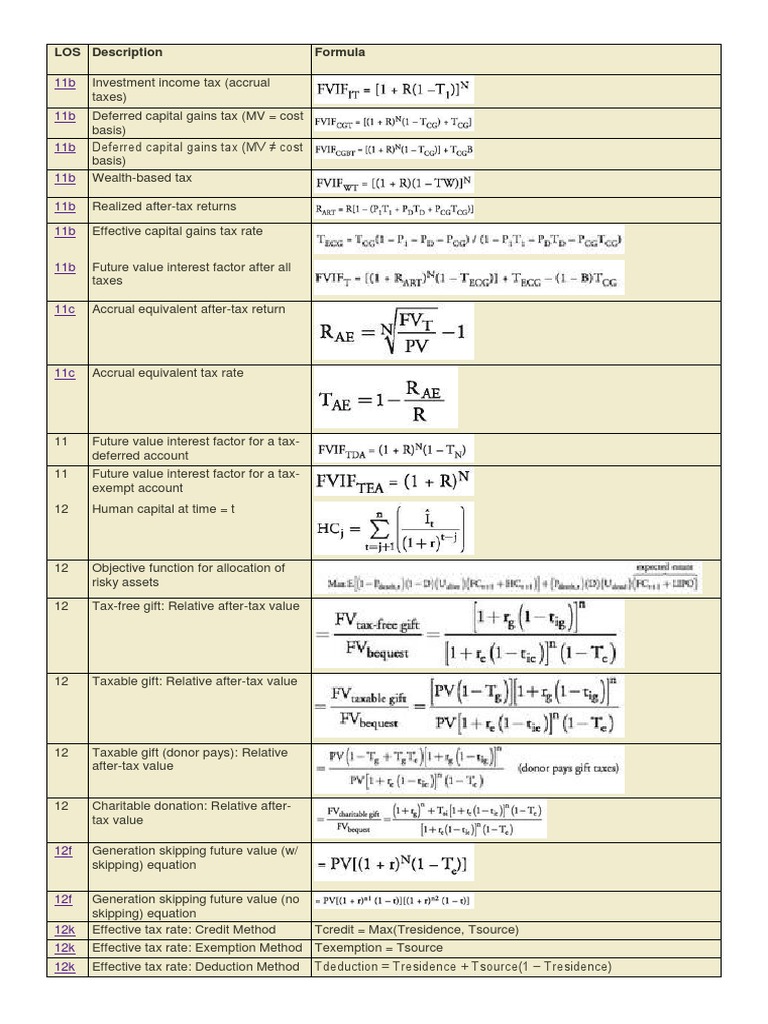 LOS Description Formula
11b Investment income tax (accrual
taxes) FVIF_IT = [1 + R(1 –T_I)]^N
11b Deferred capital gains tax (MV = cost
basis) FVIF_CGT = [(1 + R)^N(1 – T_CG) + T_CG]
11b Deferred capital gains tax (MV ≠ cost
basis) FVIF_CGBT = [(1 + R)^N(1 – T_CG)] + T_CG B
11b Wealth-based tax FVIF_WT = [(1 + R)(1 – TW)]^N
11b Realized after-tax returns R_ART = R[1 – (P_I T_I + P_D T_D + P_CG T_CG)]
11b Effective capital gains tax rate T_ECG = T_CG(1 – P_I – P_D – P_CG) / (1 – P_I T_I – P_D T_D – P_CG T_CG)
11b Future value interest factor after all
taxes FVIF_T = [(1 + R_ART)^N(1 – T_ECG)] + T_ECG – (1 – B)T_CG
11c Accrual equivalent after-tax return R_AE = N√(FV_T / PV) – 1
11c Accrual equivalent tax rate T_AE = 1 – R_AE / R
11 Future value interest factor for a tax-
deferred account FVIF_TDA = (1 + R)^N(1 – T_N)
11 Future value interest factor for a tax-
exempt account FVIF_TEA = (1 + R)^N
12 Human capital at time = t HC_j = Σ_{t=j+1}^{n} (Î_t / (1 + r)^{t–j})
12 Objective function for allocation of
risky assets expected
12 Tax-free gift: Relative after-tax value = FV_tax-free gift / FV_bequest = [1 + r_g(1 – t_ig)]^n / [1 + r_e(1 – t_ie)]^n (1 – T_e)
12 Taxable gift: Relative after-tax value = FV_taxable gift / FV_bequest = [PV(1 – T_g)][1 + r_g(1 – t_ig)]^n / PV[1 + r_e(1 – t_ie)]^n (1 – T_e)
12 Taxable gift (donor pays): Relative
after-tax value = PV(1 – T_g + T_g T_e)[1 + r_g(1 – t_ig)]^n / PV[1 + r_e(1 – t_ie)]^n (1 – T_e) (donor pays gift taxes)
12 Charitable donation: Relative after-
tax value = FV_charitable gift / FV_bequest = (1 + r_g)^n + T_oi[1 + r_e(1 – t_ie)]^n (1 – T_e) / [1 + r_e(1 – t_ie)]^n (1 – T_e)
12f Generation skipping future value (w/
skipping) equation = PV[(1 + r)^N(1 – T_e)]
12f Generation skipping future value (no
skipping) equation = PV[(1 + r)^n1 (1 – t)][(1 + r)^n2 (1 – t)]
12k Effective tax rate: Credit Method Tcredit = Max(Tresidence, Tsource)
12k Effective tax rate: Exemption Method Texemption = Tsource
12k Effective tax rate: Deduction Method Tdeduction = Tresidence + Tsource(1 – Tresidence)